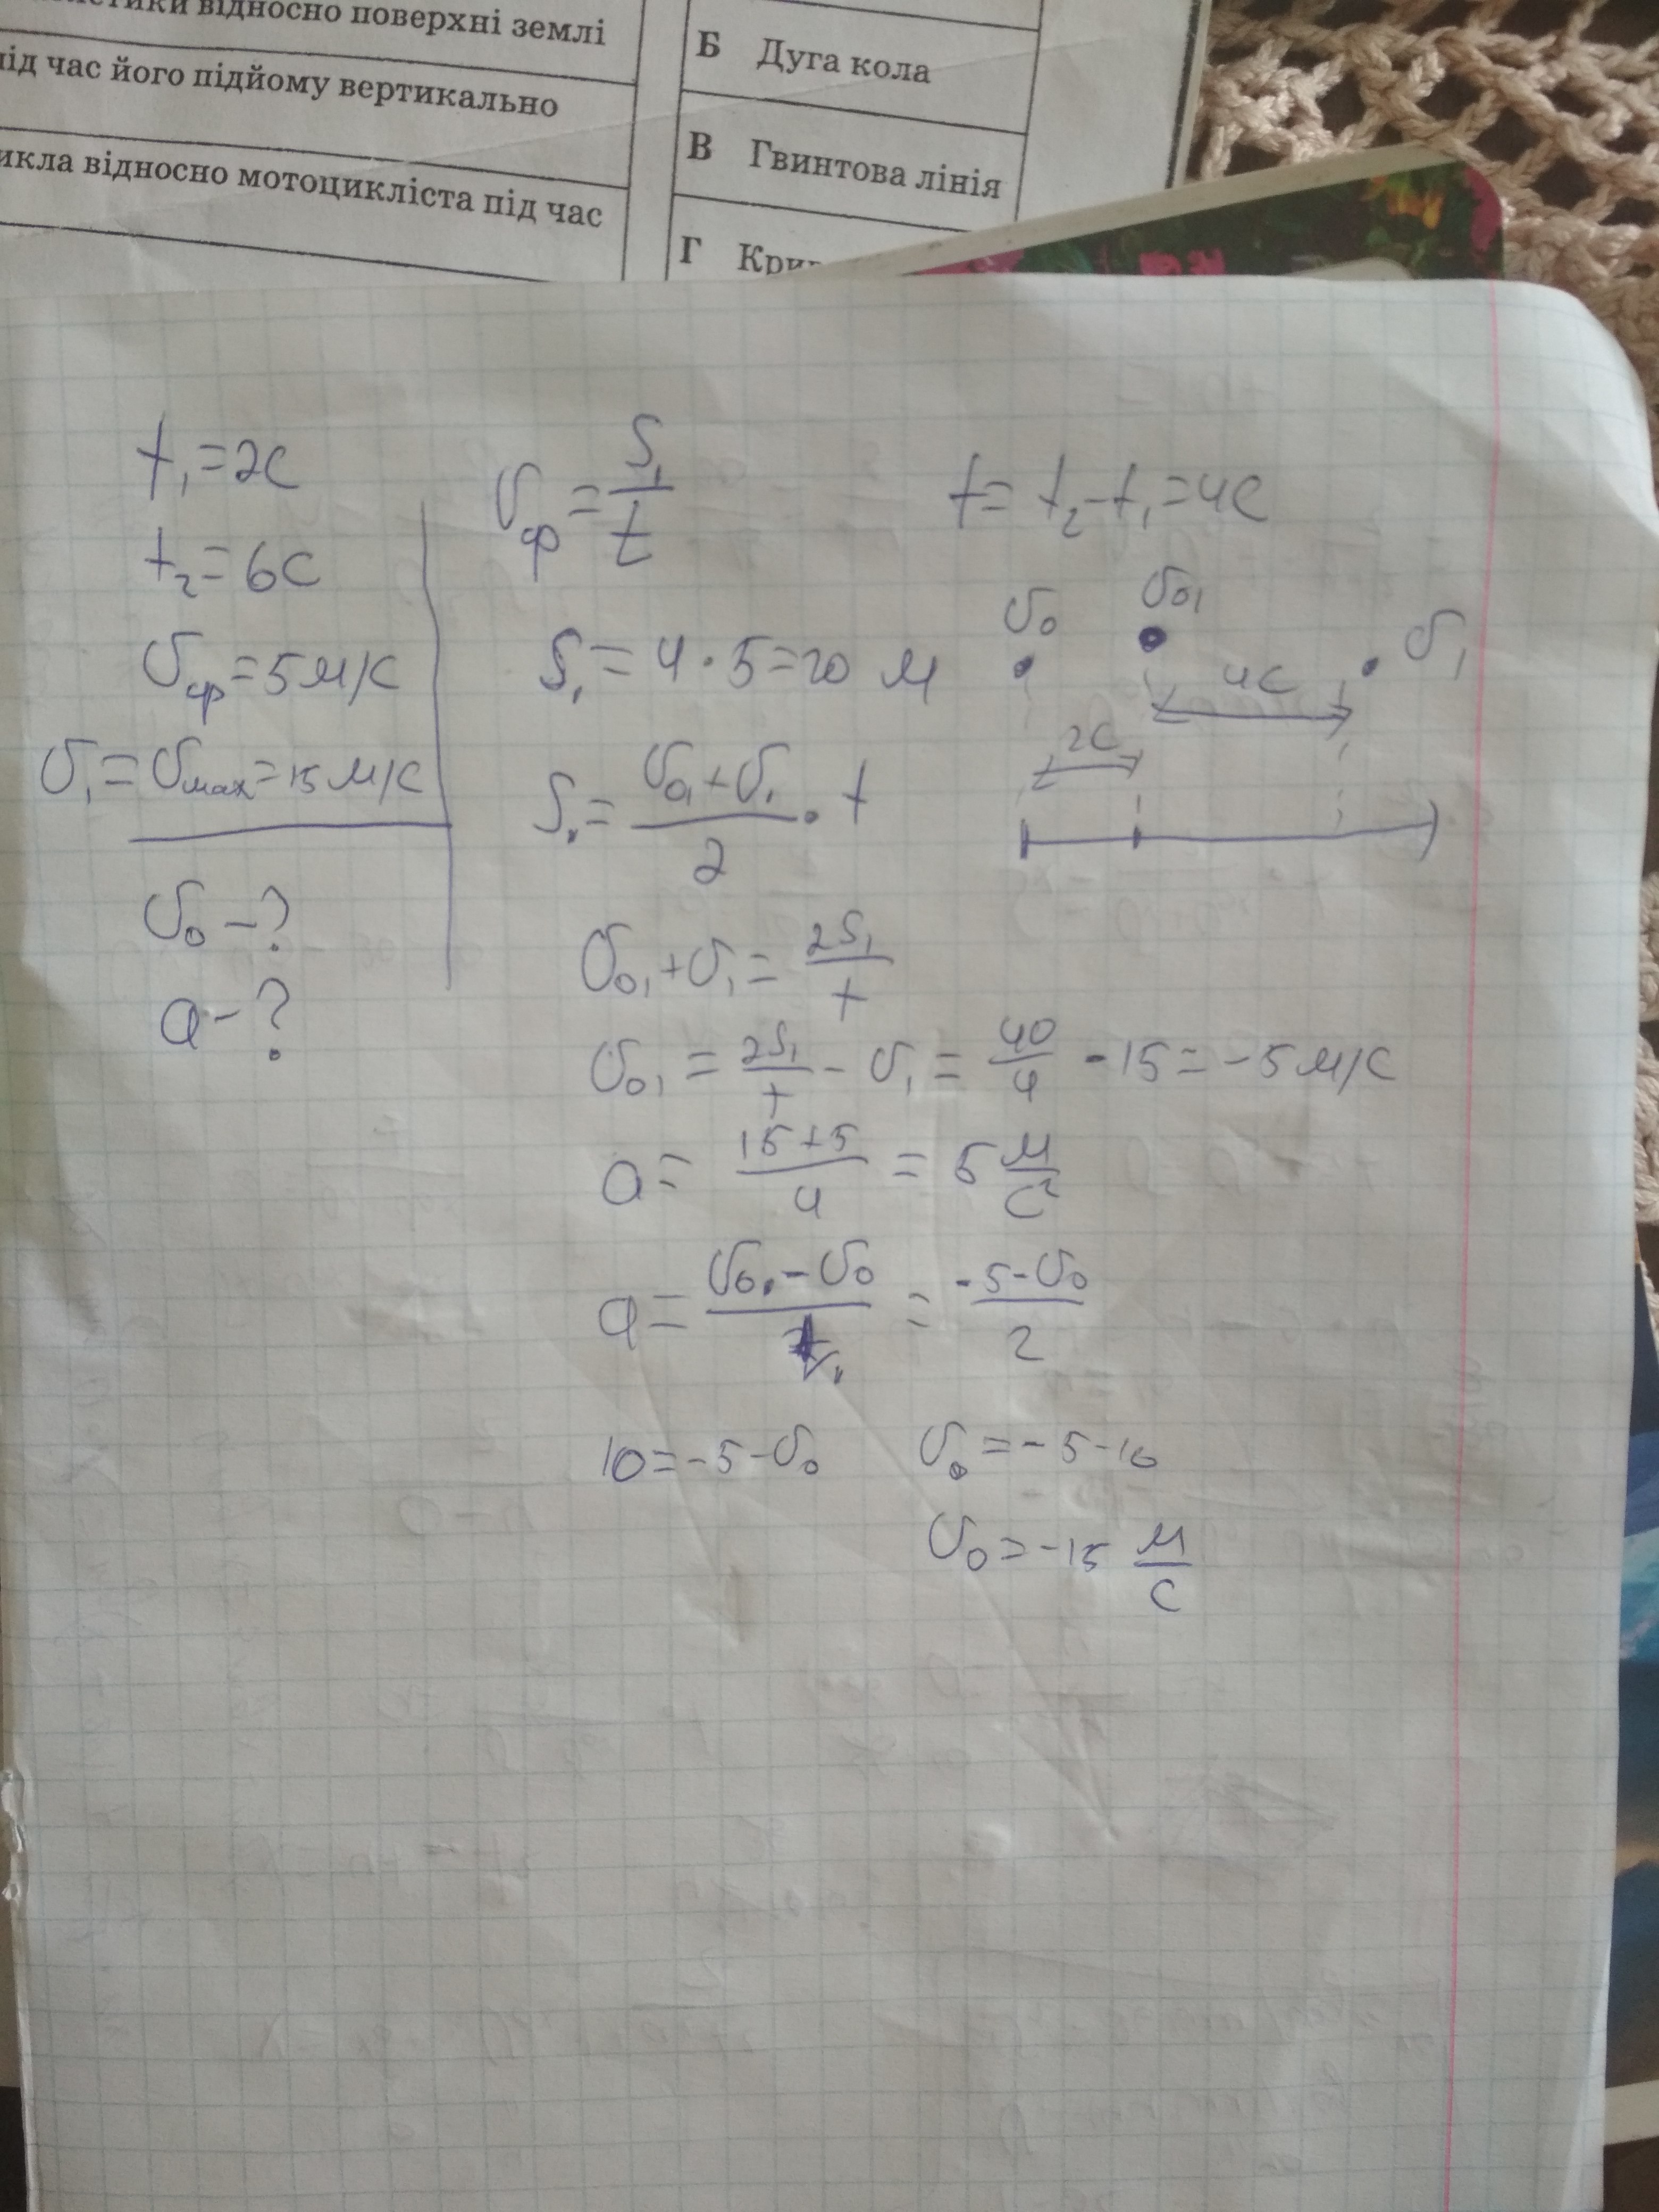 відносно поверхні землі
під час його підйому вертикально
відносно мотоцикліста під час
Б Дуга кола
В Гвинтова лінія
Г
t₁=2c
t₂=6c
υср=5м/с
υ₁=υмах=15м/с
υ₀-?
a-?
υср=S₁/t
t=t₂-t₁=4c
S₁=4·5=20 м
υ₀ υ₀₁ υ₁
4c
2c
S₁=(υ₀₁+υ₁)/2·t
υ₀₁+υ₁=2S₁/t
υ₀₁=2S₁/t-υ₁=40/4-15=-5м/с
a=(15+5)/4=5 м/с²
a=(υ₀₁-υ₀)/t₁=(-5-υ₀)/2
10=-5-υ₀ υ₀=-5-10
υ₀=-15 м/с